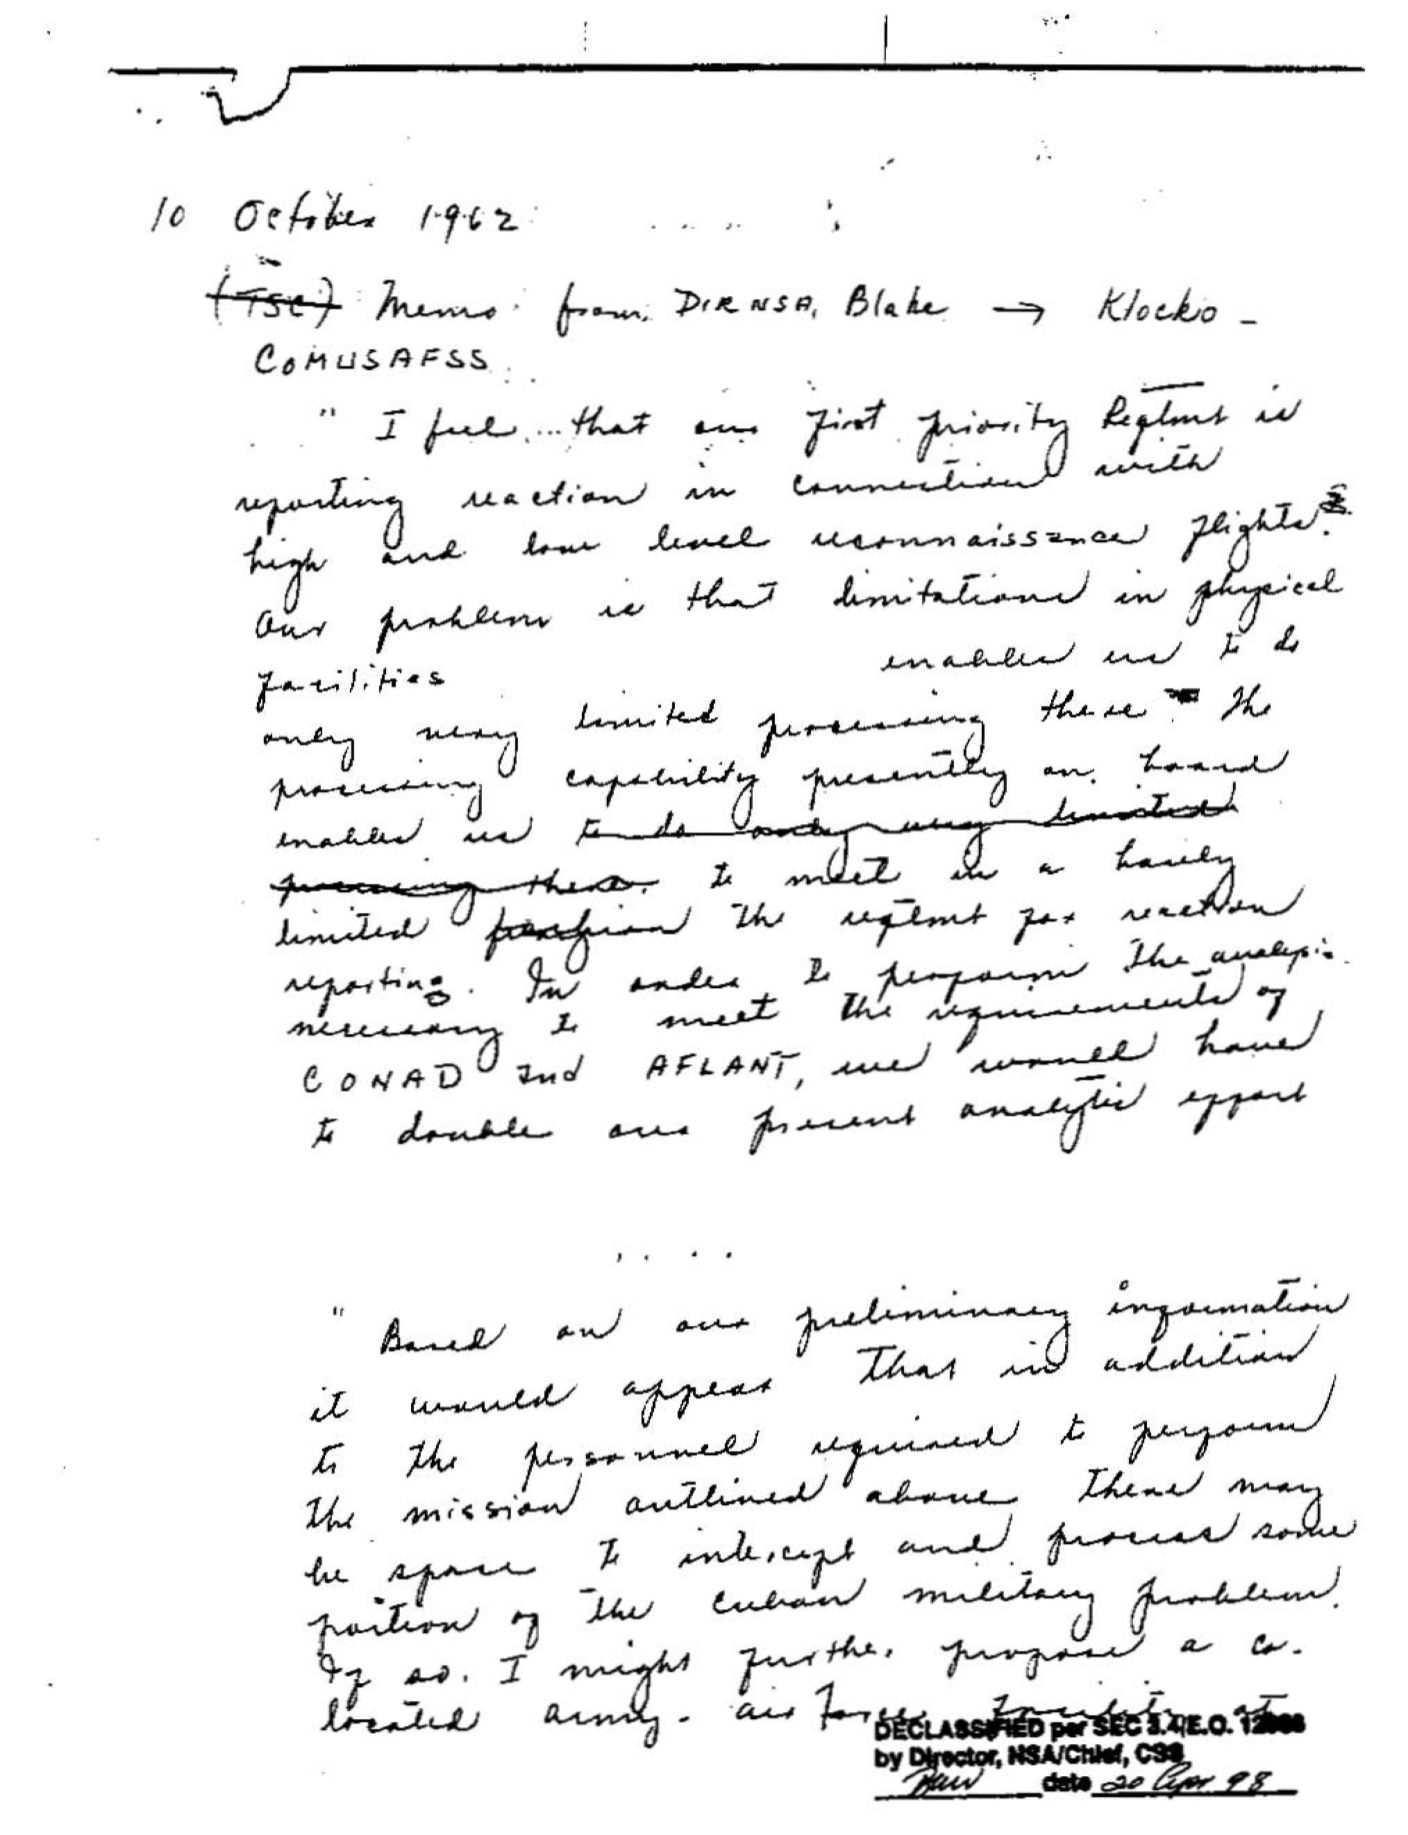 10 October 1962
(TSC) Memo from DIRNSA, Blake → Klocko -
COMUSAFSS
" I feel ... that our first priority Reqtmt is
reporting reaction in connection with
high and low level reconnaissance flights.
Our problem is that limitations in physical
facilities enables us to do
only very limited processing there. The
processing capability presently on board
enables us to do only very limited
processing there. to meet in a barely
limited fashion the reqtmt for reaction
reporting. In order to perform the analysis
necessary to meet the requirements of
CONAD and AFLANT, we would have
to double our present analytic effort
. . . .
" Based on our preliminary information
it would appear that in addition
to the personnel required to perform
the mission outlined above there may
be space to intercept and process some
portion of the Cuban military problem.
If so. I might further propose a co-
located army - air force facility at
DECLASSIFIED per SEC 3.4 E.O. 12958
by Director, NSA/Chief, CSS
date 20 Apr 98